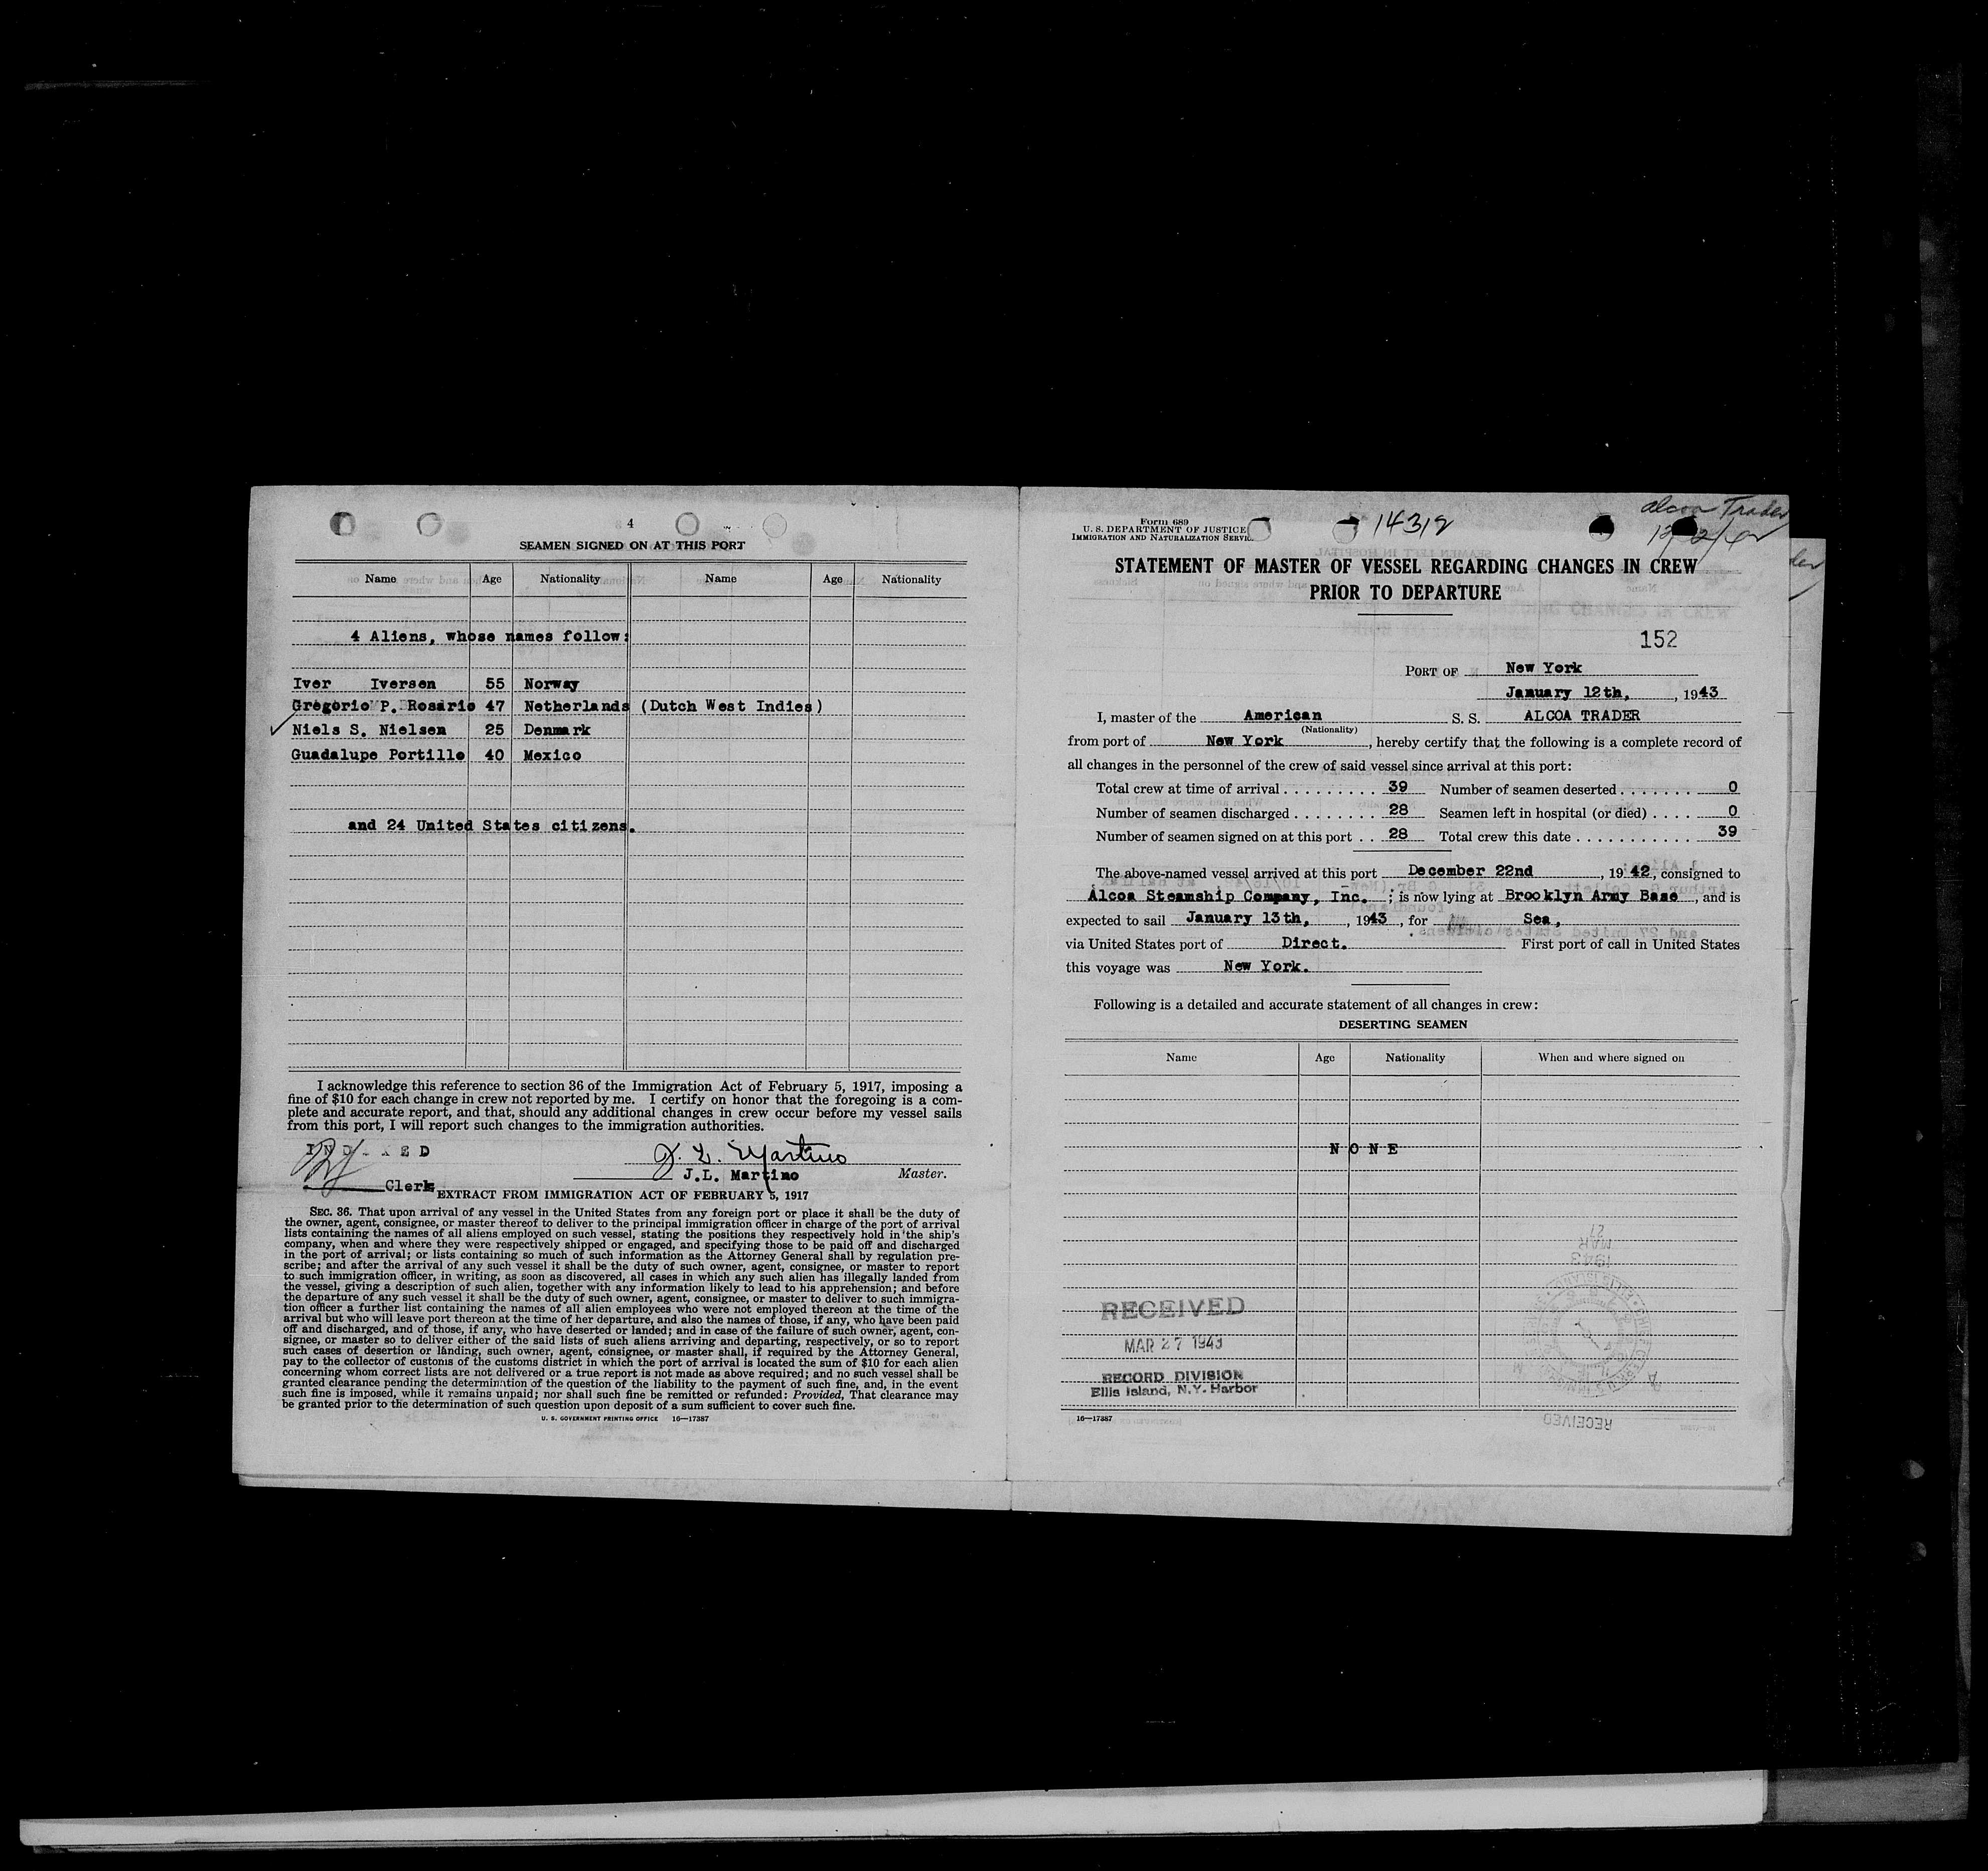 4
SEAMEN SIGNED ON AT THIS PORT
Name Age Nationality Name Age Nationality
4 Aliens, whose names follow:
Iver Iversen 55 Norway
Gregorio P. Rosario 47 Netherlands (Dutch West Indies)
Niels S. Nielsen 25 Denmark
Guadalupe Portillo 40 Mexico
and 24 United States citizens.
I acknowledge this reference to section 36 of the Immigration Act of February 5, 1917, imposing a
fine of $10 for each change in crew not reported by me. I certify on honor that the foregoing is a com-
plete and accurate report, and that, should any additional changes in crew occur before my vessel sails
from this port, I will report such changes to the immigration authorities.
J. L. Martino
J.L. Martino Master.
Clerk
EXTRACT FROM IMMIGRATION ACT OF FEBRUARY 5, 1917
SEC. 36. That upon arrival of any vessel in the United States from any foreign port or place it shall be the duty of
the owner, agent, consignee, or master thereof to deliver to the principal immigration officer in charge of the port of arrival
lists containing the names of all aliens employed on such vessel, stating the positions they respectively hold in the ship's
company, when and where they were respectively shipped or engaged, and specifying those to be paid off and discharged
in the port of arrival; or lists containing so much of such information as the Attorney General shall by regulation pre-
scribe; and after the arrival of any such vessel it shall be the duty of such owner, agent, consignee, or master to report
to such immigration officer, in writing, as soon as discovered, all cases in which any such alien has illegally landed from
the vessel, giving a description of such alien, together with any information likely to lead to his apprehension; and before
the departure of any such vessel it shall be the duty of such owner, agent, consignee, or master to deliver to such immigra-
tion officer a further list containing the names of all alien employees who were not employed thereon at the time of the
arrival but who will leave port thereon at the time of her departure, and also the names of those, if any, who have been paid
off and discharged, and of those, if any, who have deserted or landed; and in case of the failure of such owner, agent, con-
signee, or master so to deliver either of the said lists of such aliens arriving and departing, respectively, or so to report
such cases of desertion or landing, such owner, agent, consignee, or master shall, if required by the Attorney General,
pay to the collector of customs of the customs district in which the port of arrival is located the sum of $10 for each alien
concerning whom correct lists are not delivered or a true report is not made as above required; and no such vessel shall be
granted clearance pending the determination of the question of the liability to the payment of such fine, and, in the event
such fine is imposed, while it remains unpaid; nor shall such fine be remitted or refunded: Provided, That clearance may
be granted prior to the determination of such question upon deposit of a sum sufficient to cover such fine.
U. S. GOVERNMENT PRINTING OFFICE 16—17387
Form 689
U. S. DEPARTMENT OF JUSTICE
IMMIGRATION AND NATURALIZATION
14312
Alcoa Trader
STATEMENT OF MASTER OF VESSEL REGARDING CHANGES IN CREW
PRIOR TO DEPARTURE
152
PORT OF New York
January 12th, , 1943
I, master of the American S. S. ALCOA TRADER
(Nationality)
from port of New York , hereby certify that the following is a complete record of
all changes in the personnel of the crew of said vessel since arrival at this port:
Total crew at time of arrival . . . . . . . . . 39 Number of seamen deserted . . . . . . . 0
Number of seamen discharged . . . . . . . . 28 Seamen left in hospital (or died) . . . . 0
Number of seamen signed on at this port . . 28 Total crew this date . . . . . . . . . . . 39
The above-named vessel arrived at this port December 22nd , 1942, consigned to
Alcoa Steamship Company, Inc. ; is now lying at Brooklyn Army Base , and is
expected to sail January 13th, , 1943 , for Sea,
via United States port of Direct. First port of call in United States
this voyage was New York.
Following is a detailed and accurate statement of all changes in crew:
DESERTING SEAMEN
Name Age Nationality When and where signed on
NONE
RECEIVED
MAR 27 1943
RECORD DIVISION
Ellis Island, N.Y. Harbor
16—17387